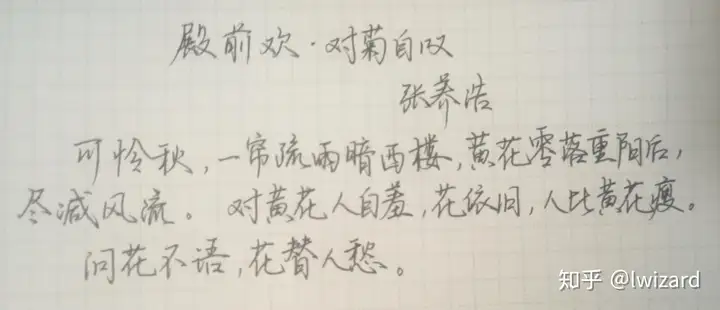 殿前欢·对菊自叹
张养浩
可怜秋,一帘疏雨暗西楼,黄花零落重阳后,
尽减风流。对黄花人自羞,花依旧,人比黄花瘦。
问花不语,花替人愁。
知乎 @lwizard